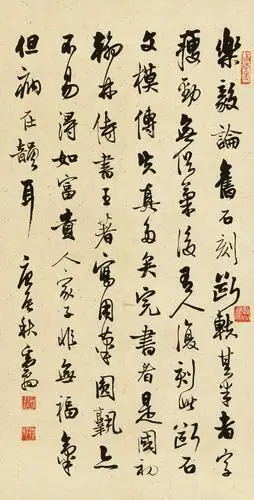 樂毅論舊石刻斷軼其半者字
瘦勁無俗氣後有人復刻此斷石
文模傳失真多矣完書者是國初
翰林侍書王著寫用筆圓熟亦
不易得如富貴人家子非無福氣
但病在韻耳 庚秋